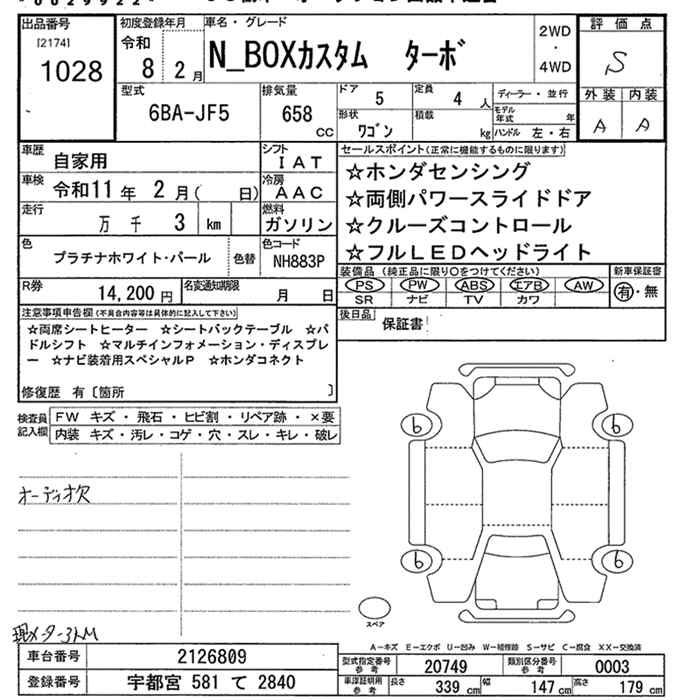 出品番号
[2174]
1028
初度登録年月
令和
8 2月
車名・グレード
N_BOXカスタム ターボ
2WD
・
4WD
評価点
S
外装 内装
A A
型式
6BA-JF5
排気量
658 cc
ドア
5
定員
4 人
形状
ワゴン
積載
kg
ディーラー・並行
モデル年式 年
ハンドル 左・右
車歴
自家用
シフト
IAT
車検
令和11年 2月( 日)
冷房
AAC
走行
万 千 3 km
燃料
ガソリン
色
プラチナホワイト・パール
色替
色コード
NH883P
R券
14,200円
名変通知期限
月 日
セールスポイント(正常に機能するものに限ります)
☆ホンダセンシング
☆両側パワースライドドア
☆クルーズコントロール
☆フルLEDヘッドライト
装備品 (純正品に限り〇をつけてください)
PS PW ABS エアB AW
SR ナビ TV カワ
新車保証書
有・無
後日品
保証書
注意事項申告欄(不具合内容等は具体的に記入して下さい)
☆両席シートヒーター ☆シートバックテーブル ☆パ
ドルシフト ☆マルチインフォメーション・ディスプレ
ー ☆ナビ装着用スペシャルP ☆ホンダコネクト
修復歴 有〔箇所 〕
検査員記入欄
FW キズ・飛石・ヒビ割・リペア跡・×要
内装 キズ・汚レ・コゲ・穴・スレ・キレ・破レ
オーディオ欠
6 6
6 6
スペア
現メーター3kM
A-キズ E-エクボ U-凹み W-補修跡 S-サビ C-腐食 XX-交換済
車台番号 2126809
登録番号 宇都宮 581 て 2840
型式指定番号 参考 20749
類別区分番号 参考 0003
車庫証明用 参考 長さ 339 cm 幅 147 cm 高さ 179 cm